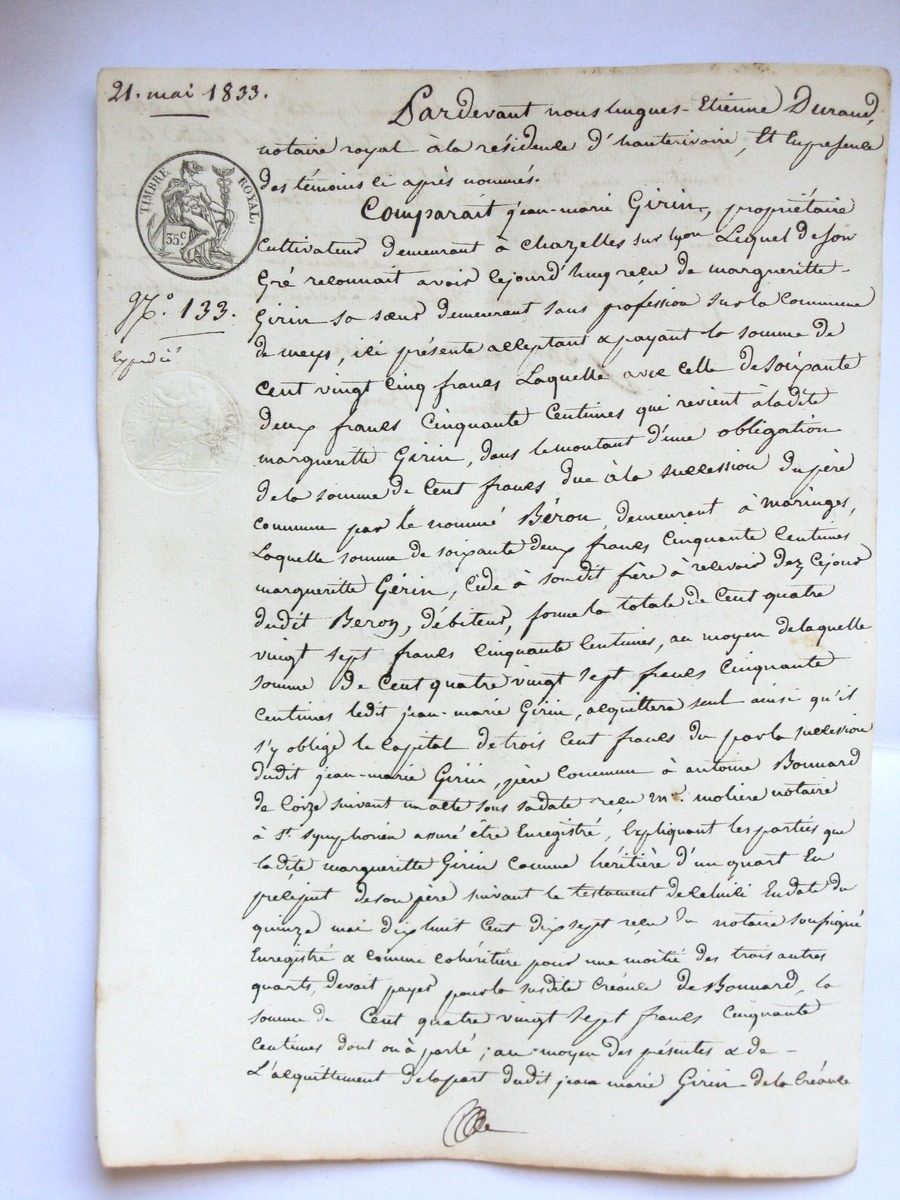 21. mai 1833.
Pardevant nous hugues-Etienne Durand,
notaire royal à la résidence d'hauterivoire, Et En presence
des témoins ci après nommés.
TIMBRE ROYAL
35 c
Comparait jean-marie Girin, propriétaire
Cultivateur demeurant à Chazelles sur lyon Lequel de son
Gré reconnait avoir cejourd'huy reçu de margueritte-
N.o 133.
Girin sa sœur demeurant sans profession sur la commune
Expedié
de meys, ici présente acceptant & payant la somme de
Cent vingt cinq francs Laquelle avec celle de soixante
deux francs Cinquante Centimes qui revient à ladite
margueritte Girin, dans le montant d'une obligation
de la somme de Cent francs due à la succession du père
commun par le nommé Béron, demeurant à maringes,
Laquelle somme de soixante deux francs Cinquante Centimes
margueritte Girin, Cède à son dit frère à recevoir dez cejour
dudit Beron, débiteur, forme la totale de Cent quatre
vingt sept francs Cinquante Centimes, au moyen de laquelle
somme de Cent quatre vingt sept francs Cinquante
Centimes ledit jean-marie Girin, acquittera seul ainsi qu'il
s'y oblige le Capital de trois Cent francs du par la succession
dudit jean-marie Girin, père Commun à antoine Bonnard
de Coize suivant un acte sous sa date reçu me. moliere notaire
à St. symphorien assuré être Enregistré, Expliquant les parties que
ladite margueritte Girin comme héritière d'un quart En
préciput de son père suivant le testament de celuici En date du
quinze mai dix huit Cent dix sept reçu du notaire soussigné
Enregistré & comme cohéritière pour une moitié des trois autres
quarts, devait payer pour la susdite Créance de Bonnard, la
somme de Cent quatre vingt sept francs Cinquante
Centimes dont on à parlé; au moyen des présentes & de-
L'acquittement de la part dudit jean marie Girin de la Créance